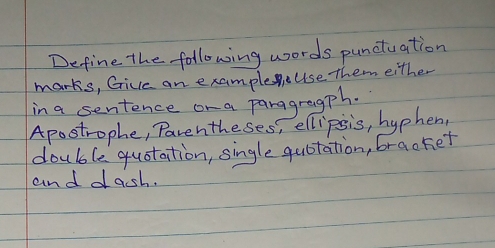 Define the following words punctuation
marks, Give an examples, Use them either
in a sentence or a paragragph.
Apostrophe, Parentheses, ellipsis, hyphen,
double quotation, single quotation, bracket
and dash.